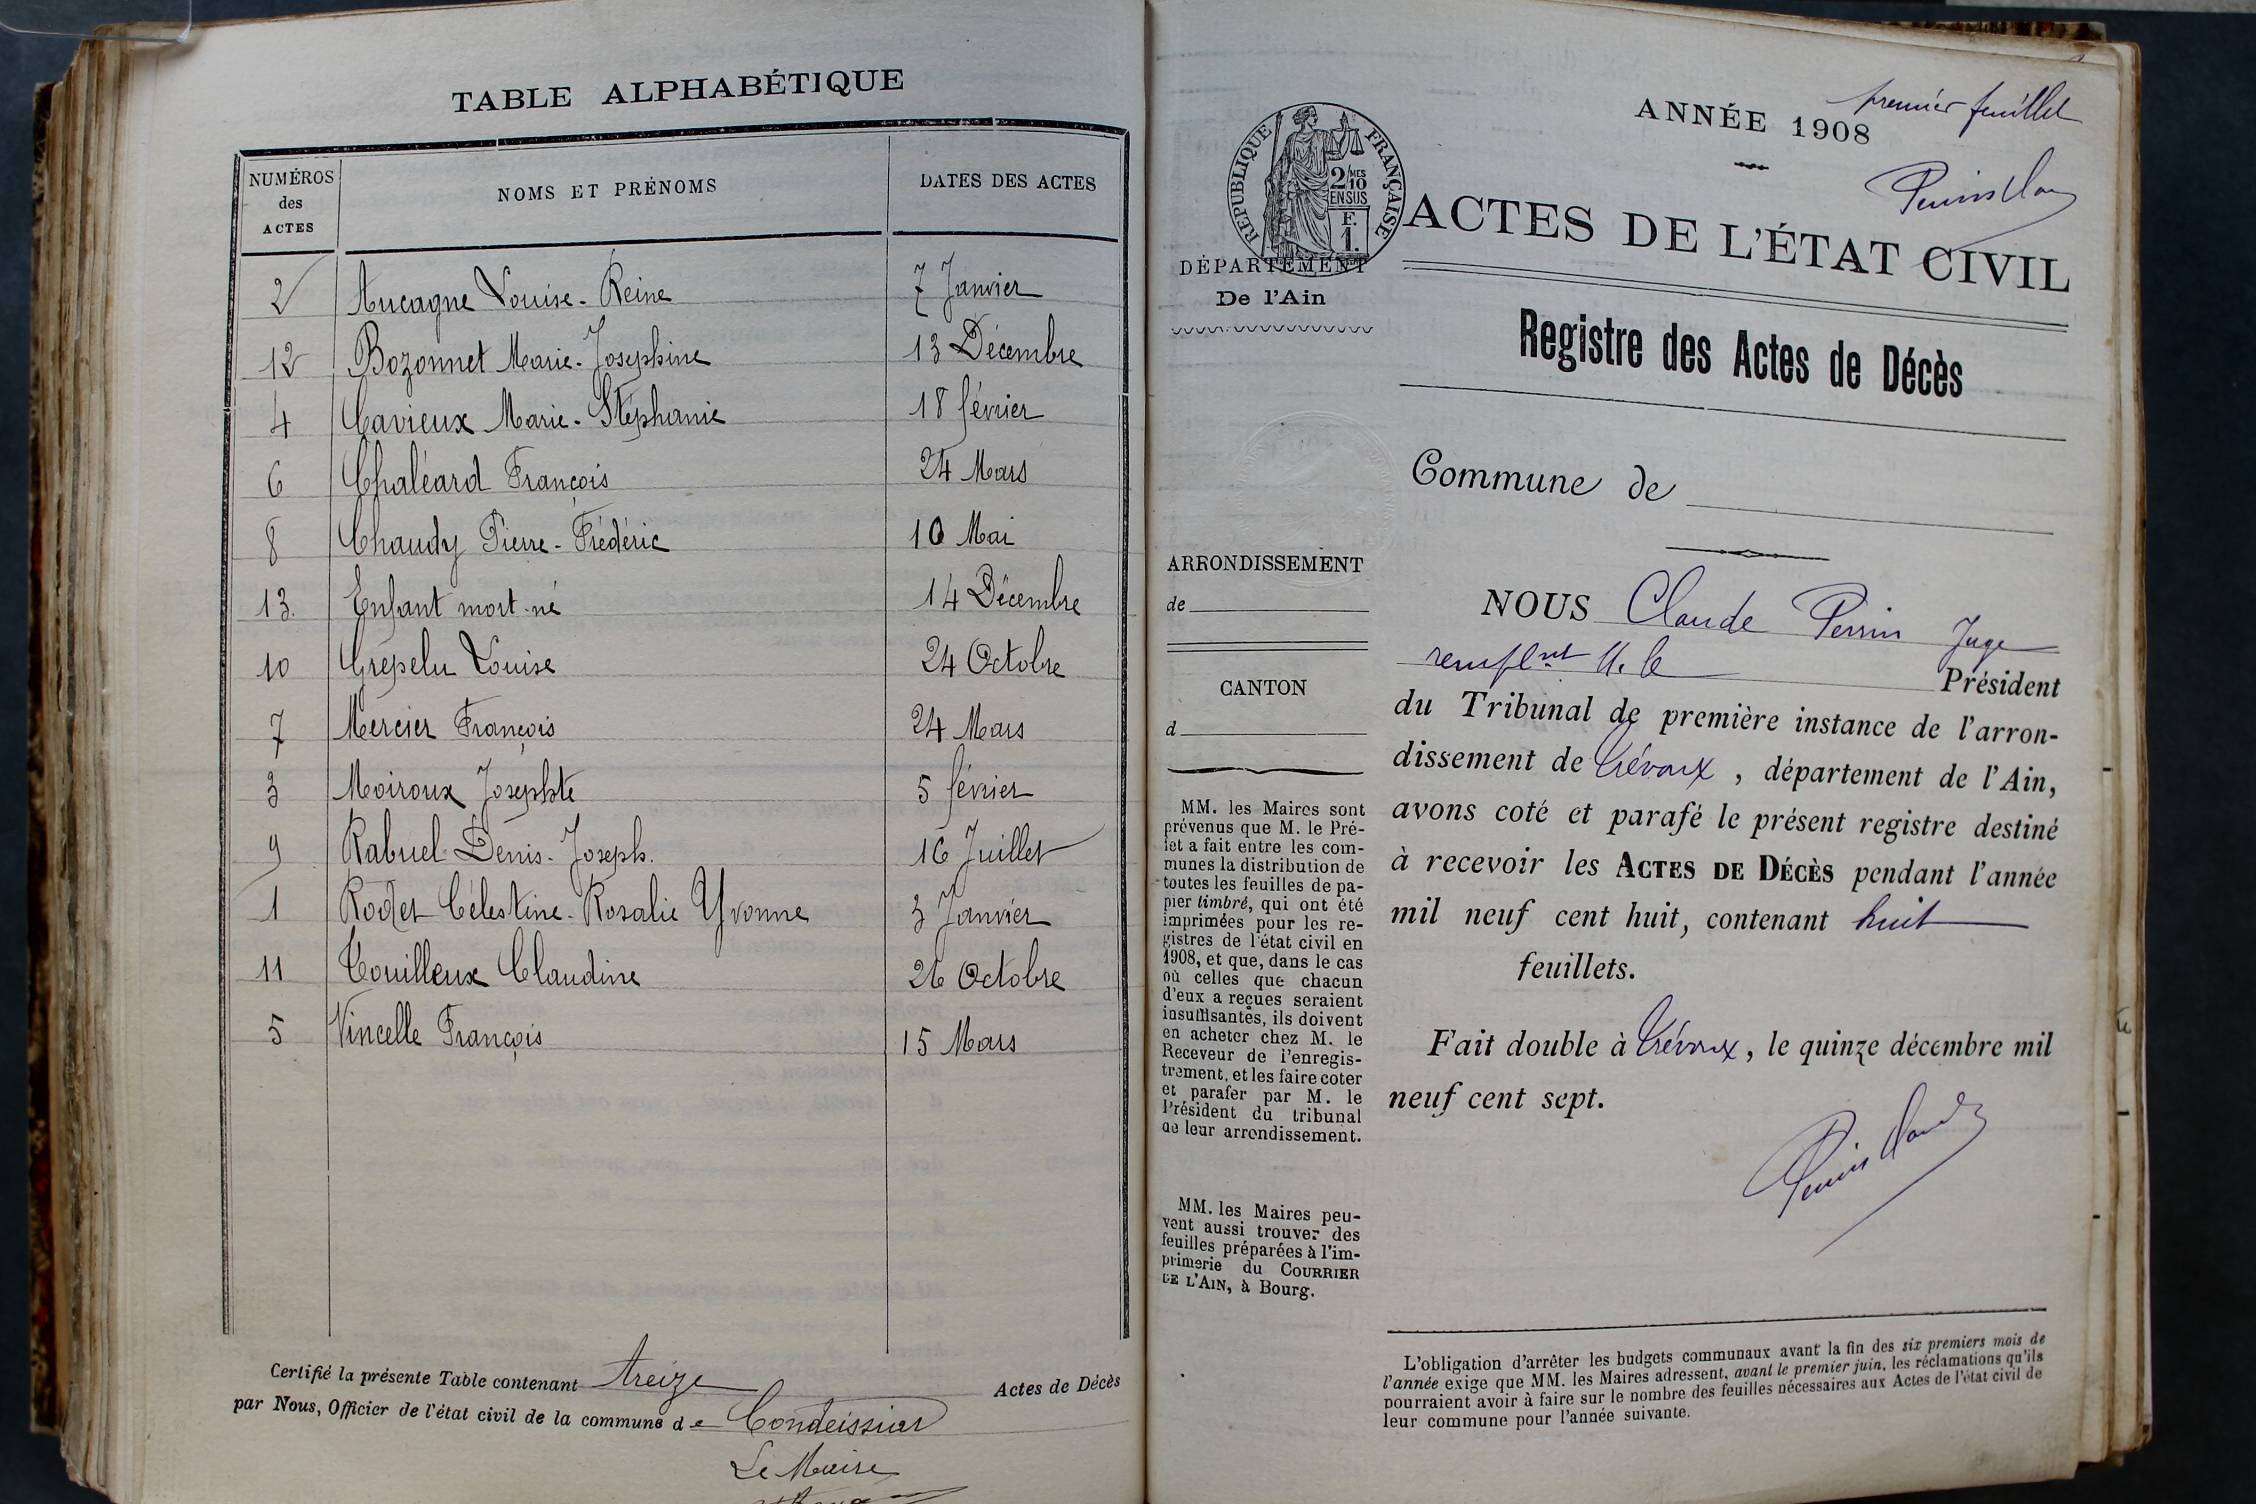 TABLE ALPHABÉTIQUE
NUMÉROS des ACTES NOMS ET PRÉNOMS DATES DES ACTES
2 Aucagne Louise-Reine 7 Janvier
12 Bozonnet Marie-Joséphine 13 Décembre
4 Cavieux Marie-Stéphanie 18 février
6 Chaléard François 24 Mars
8 Chaudy Pierre-Frédéric 10 Mai
13. Enfant mort-né 14 Décembre
10 Grépelu Louise 24 Octobre
7 Mercier François 24 Mars
3 Moiroux Josephte 5 février
9 Rabuel Denis-Joseph. 16 Juillet
1 Rodet Célestine-Rosalie Yvonne 3 Janvier
11 Touilleux Claudine 26 Octobre
5 Vincelle François 15 Mars
Certifié la présente Table contenant treize Actes de Décès
par Nous, Officier de l'état civil de la commune de Condeissiat
Le Maire
premier feuillet
ANNÉE 1908
RÉPUBLIQUE FRANÇAISE
2/10 MES
EN SUS
F.
1.
ACTES DE L'ÉTAT CIVIL
DÉPARTEMENT
De l'Ain
Registre des Actes de Décès
Commune de
ARRONDISSEMENT
de
CANTON
d
MM. les Maires sont
prévenus que M. le Pré-
fet a fait entre les com-
munes la distribution de
toutes les feuilles de pa-
pier timbré, qui ont été
imprimées pour les re-
gistres de l'état civil en
1908, et que, dans le cas
où celles que chacun
d'eux a reçues seraient
insuffisantes, ils doivent
en acheter chez M. le
Receveur de l'enregis-
trement, et les faire coter
et parafer par M. le
Président du tribunal
de leur arrondissement.
MM. les Maires peu-
vent aussi trouver des
feuilles préparées à l'im-
primerie du COURRIER
DE L'AIN, à Bourg.
NOUS Claude Perrin Juge
remplnt M. le Président
du Tribunal de première instance de l'arron-
dissement de Trévoux, département de l'Ain,
avons coté et parafé le présent registre destiné
à recevoir les ACTES DE DÉCÈS pendant l'année
mil neuf cent huit, contenant huit
feuillets.
Fait double à Trévoux, le quinze décembre mil
neuf cent sept.
L'obligation d'arrêter les budgets communaux avant la fin des six premiers mois de
l'année exige que MM. les Maires adressent, avant le premier juin, les réclamations qu'ils
pourraient avoir à faire sur le nombre des feuilles nécessaires aux Actes de l'état civil de
leur commune pour l'année suivante.